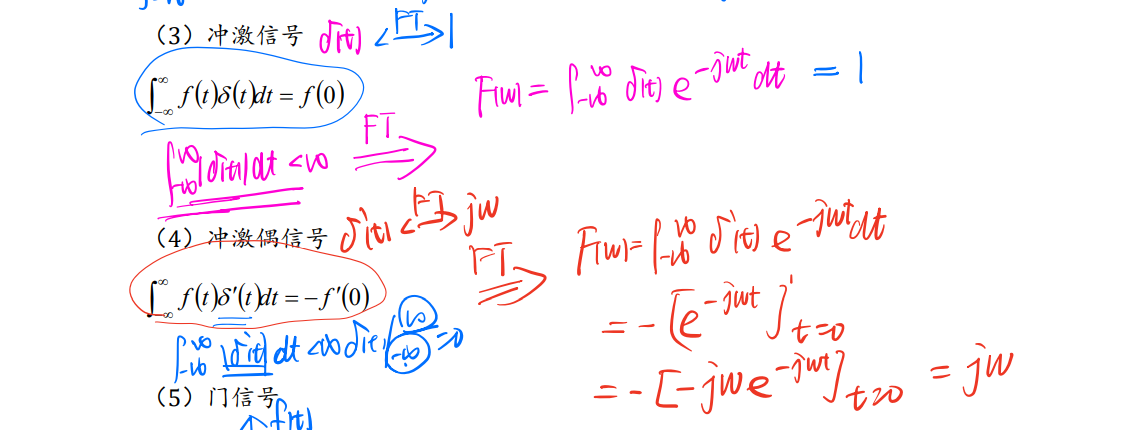 (3) 冲激信号 δ(t) <-FT-> 1
∫_{-∞}^{∞} f(t)δ(t)dt = f(0)
F(w) = ∫_{-∞}^{∞} δ(t) e^{-jwt} dt = 1
∫_{-∞}^{∞} |δ(t)| dt < ∞ FT ⇒
(4) 冲激偶信号 δ'(t) <-FT-> jw
∫_{-∞}^{∞} f(t)δ'(t)dt = -f'(0) FT ⇒
F(w) = ∫_{-∞}^{∞} δ'(t) e^{-jwt} dt
= -[e^{-jwt}]'_{t=0}
= -[-jwe^{-jwt}]_{t=0} = jw
∫_{-∞}^{∞} |δ'(t)| dt < ∞ δ(t) |_{-∞}^{∞} = 0
(5) 门信号
f(t)